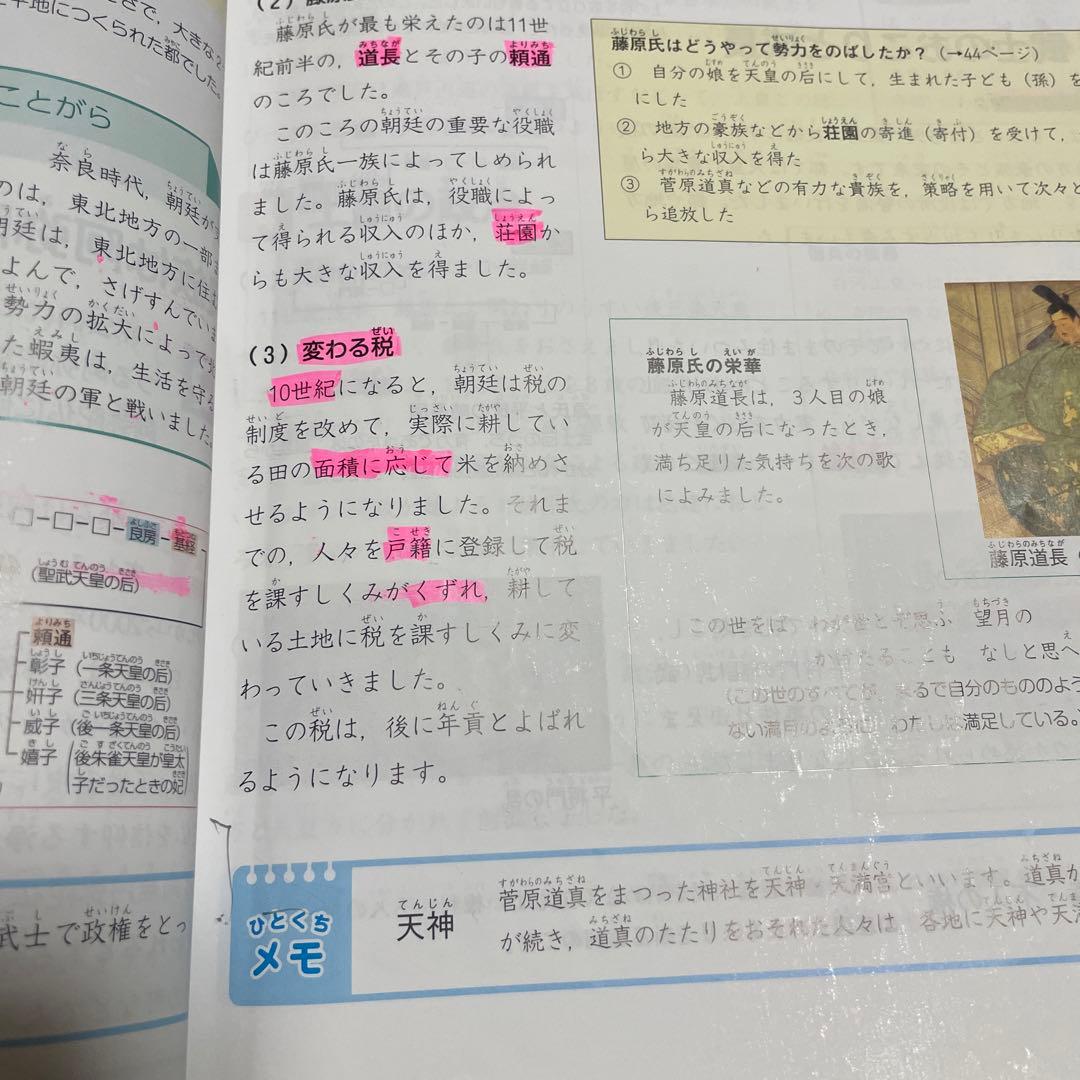 平地につくられた都でした。
ことがら
奈良時代，朝廷が
のは，東北地方の一部
朝廷は，東北地方に住
よんで，さげすんでいま
勢力の拡大によって
た蝦夷は，生活を守る
朝廷の軍と戦いました。
良房
基経
(聖武天皇の后)
頼通
彰子(一条天皇の后)
妍子(三条天皇の后)
威子(後一条天皇の后)
嬉子(後朱雀天皇が皇太
子だったときの妃)
武士で政権をとっ
(2)
藤原氏が最も栄えたのは11世
紀前半の，道長とその子の頼通
のころでした。
このころの朝廷の重要な役職
は藤原氏一族によってしめられ
ました。藤原氏は，役職によっ
て得られる収入のほか，荘園か
らも大きな収入を得ました。
(3) 変わる税
10世紀になると，朝廷は税の
制度を改めて，実際に耕してい
る田の面積に応じて米を納めさ
せるようになりました。それま
での，人々を戸籍に登録して税
を課すしくみがくずれ，耕して
いる土地に税を課すしくみに変
わっていきました。
この税は，後に年貢とよばれ
るようになります。
藤原氏はどうやって勢力をのばしたか？(→44ページ)
① 自分の娘を天皇の后にして，生まれた子ども(孫)を
にした
② 地方の豪族などから荘園の寄進(寄付)を受けて，
ら大きな収入を得た
③ 菅原道真などの有力な貴族を，策略を用いて次々と
ら追放した
藤原氏の栄華
藤原道長は，3人目の娘
が天皇の后になったとき，
満ち足りた気持ちを次の歌
によみました。
藤原道長
この世をば わが世とぞ思ふ 望月の
かけたることも なしと思へ
(この世のすべてが，まるで自分のもののよう
ない満月のように，わたしは満足している。)
ひとくち
メモ
天神
菅原道真をまつった神社を天神・天満宮といいます。道真が
が続き，道真のたたりをおそれた人々は，各地に天神や天満